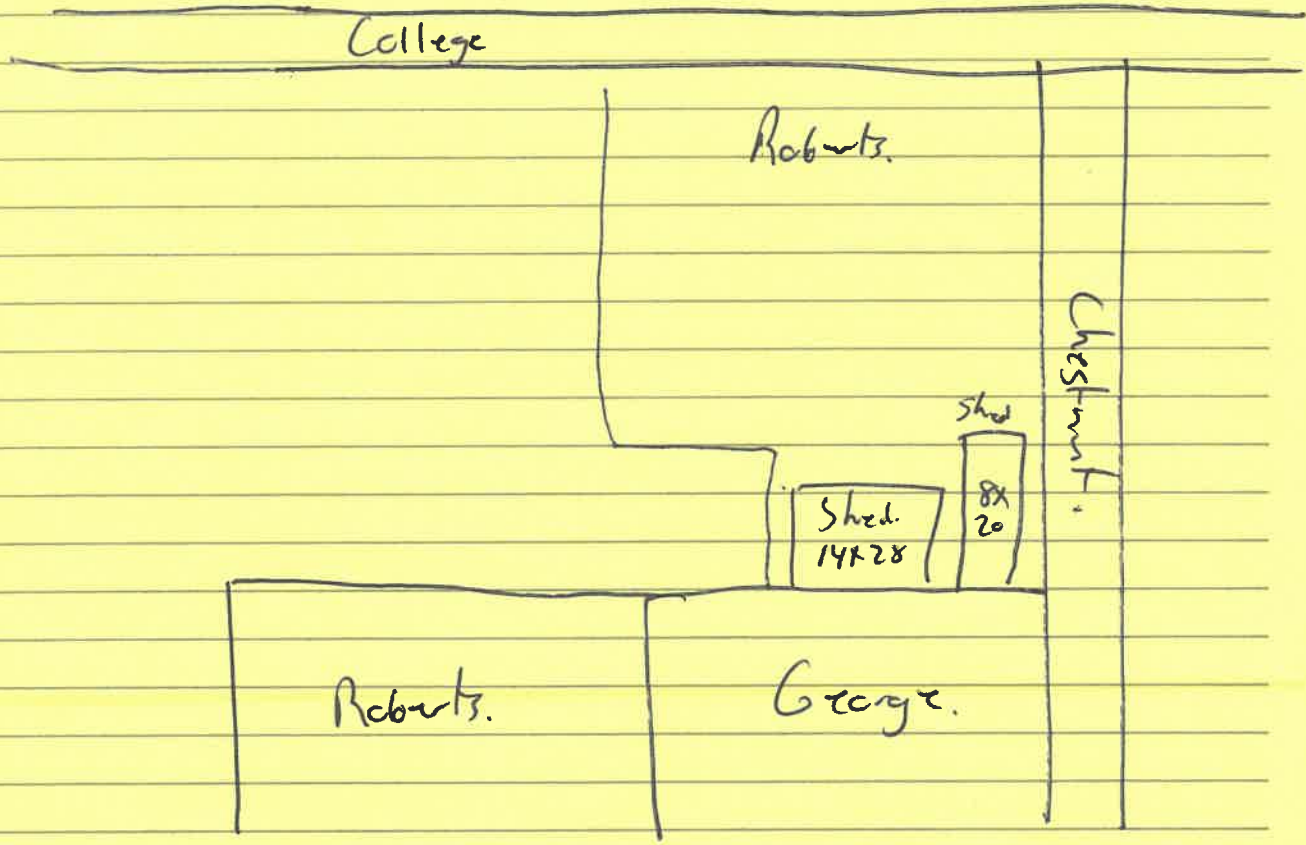 College
Roberts.
Chestnut.
Shed
8X
20
Shed.
14X28
Roberts.
George.